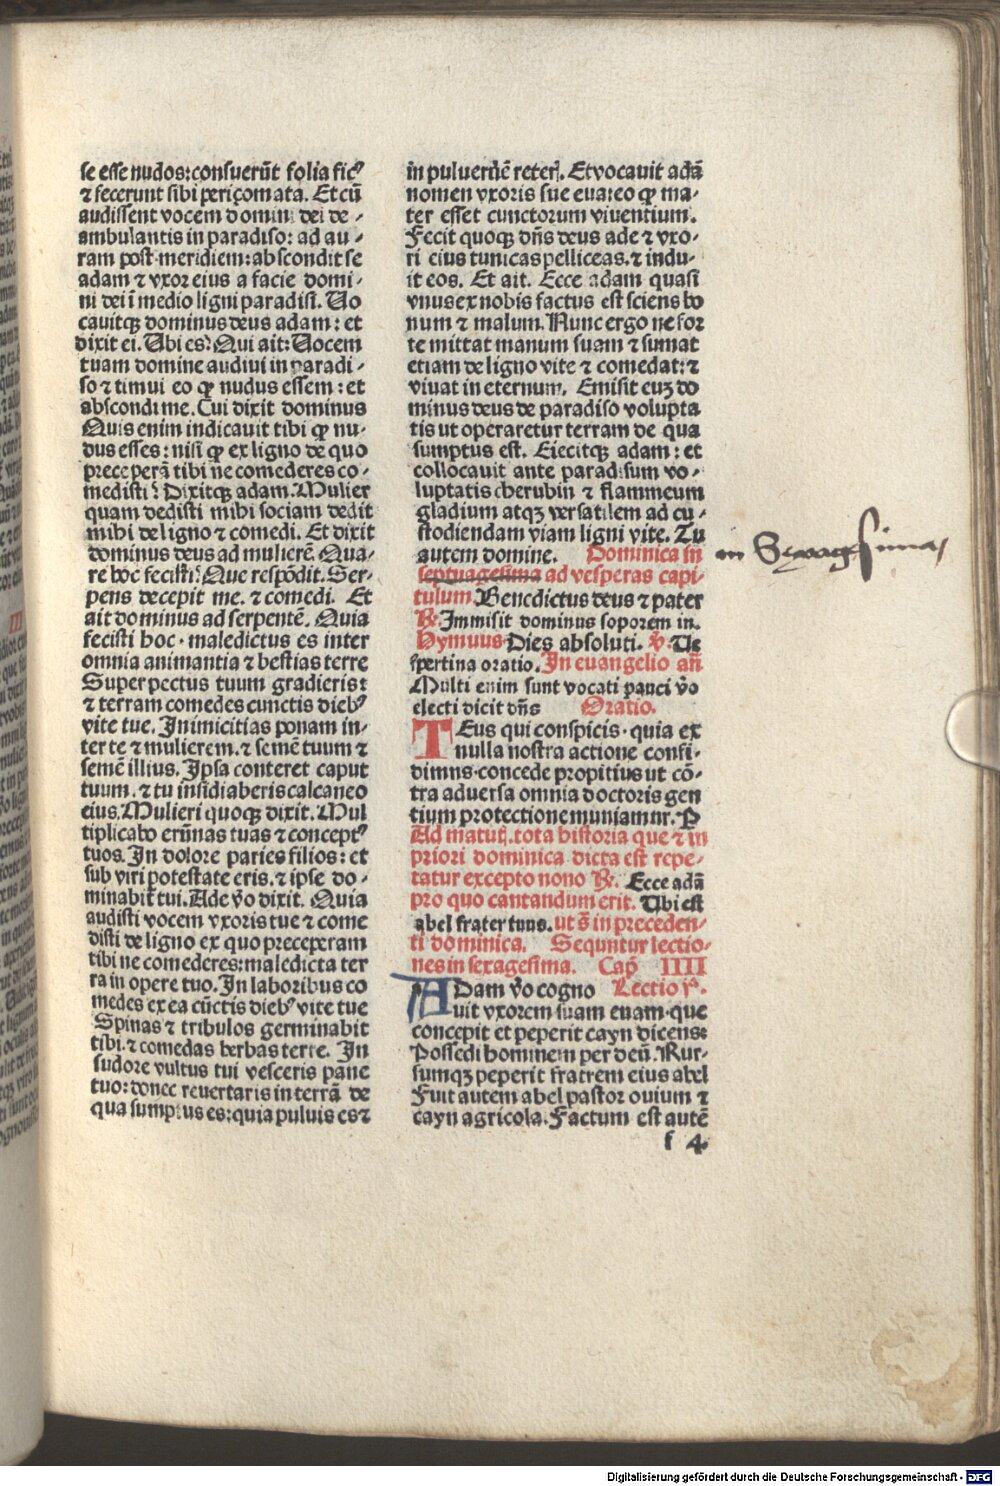 se esse nudos: consuerūt folia ficꝰ
⁊ fecerunt sibi periçomata. Et cū
audissent vocem domini dei de-
ambulantis in paradiso: ad au-
ram post meridiem: abscondit se
adam ⁊ vxor eius a facie domi-
ni dei ī medio ligni paradisi. Uo
cauitqꝫ dominus deus adam: et
dixit ei. Ubi es? Qui ait: Uocem
tuam domine audiui in paradi-
so ⁊ timui eo ꝙ nudus essem: et
abscondi me. Cui dixit dominus
Quis enim indicauit tibi ꝙ nu-
dus esses: nisi ꝙ ex ligno de quo
preceperā tibi ne comederes co-
medisti? Dixitqꝫ adam. Mulier
quam dedisti mihi sociam dedit
mihi de ligno ⁊ comedi. Et dixit
dominus deus ad mulierē. Qua-
re hoc fecisti? Que respōdit. Ser-
pens decepit me. ⁊ comedi. Et
ait dominus ad serpentē. Quia
fecisti hoc. maledictus es inter
omnia animantia ⁊ bestias terre
Super pectus tuum gradieris:
⁊ terram comedes cunctis diebꝰ
vite tue. Inimicitias ponam in-
ter te ⁊ mulierem. ⁊ semē tuum ⁊
semē illius. Ipsa conteret caput
tuum. ⁊ tu insidiaberis calcaneo
eius. Mulieri quoqꝫ dixit. Mul
tiplicabo erūnas tuas ⁊ conceptꝰ
tuos. In dolore paries filios: et
sub viri potestate eris. ⁊ ipse do-
minabit̄ tui. Ade v̄o dixit. Quia
audisti vocem vxoris tue ⁊ come
disti de ligno ex quo preceperam
tibi ne comederes: maledicta ter
ra in opere tuo. In laboribus co
medes ex ea cūctis diebꝰ vite tue
Spinas ⁊ tribulos germinabit
tibi. ⁊ comedas herbas terre. In
sudore vultus tui vesceris pane
tuo: donec reuertaris in terrā de
qua sumptus es: quia puluis es ⁊
in puluerē reter̄. Et vocauit adā
nomen vxoris sue eua: eo ꝙ ma-
ter esset cunctorum viuentium.
Fecit quoqꝫ dn̄s deus ade ⁊ vxo-
ri eius tunicas pelliceas. ⁊ indu-
it eos. Et ait. Ecce adam quasi
vnus ex nobis factus est sciens bo
num ⁊ malum. Nunc ergo ne for
te mittat manum suam ⁊ sumat
etiam de ligno vite ⁊ comedat: ⁊
viuat in eternum. Emisit euꝫ do
minus deus de paradiso volupta
tis ut operaretur terram de qua
sumptus est. Eiecitqꝫ adam: et
collocauit ante paradisum vo-
luptatis cherubin ⁊ flammeum
gladium atqꝫ versatilem ad cu-
stodiendam viam ligni vite. Tu
autem domine. Dominica in
septuagesima ad vesperas capi-
tulum. Benedictus deus ⁊ pater
℟. Immisit dominus soporem in.
Hymuus Dies absoluti. ℣. Ue
spertina oratio. In euangelio an̄
Multi enim sunt vocati pauci v̄o
electi dicit dn̄s Oratio.
TEus qui conspicis. quia ex
nulla nostra actione confi-
dimns. concede propitius ut cō-
tra aduersa omnia doctoris gen
tium protectione muniamnr. P
Ad matut̄. tota historia que ⁊ in
priori dominica dicta est repe-
tatur excepto nono ℟. Ecce adā
pro quo cantandum erit. Ubi est
abel frater tuus. ut s̄ in preceden-
ti dominica. Sequntur lectio-
nes in sexagesima. Cap̄ IIII
ADam v̄o cogno Lectio jª.
uit vxorem suam euam. que
concepit et peperit cayn dicens:
Possedi hominem per deū. Rur-
sumqꝫ peperit fratrem eius abel
Fuit autem abel pastor ouium ⁊
cayn agricola. Factum est autē
f 4
in Sexagesima
Digitalisierung gefördert durch die Deutsche Forschungsgemeinschaft - DFG